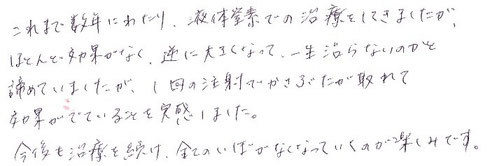 これまで数年にわたり、液体窒素での治療をしてきましたが、
ほとんど効果がなく、逆に大きくなって、一生治らないのかと
諦めていましたが、1回の注射でかさぶたが取れて
効果がでていることを実感しました。
今後も治療を続け、全てのいぼがなくなっていくのが楽しみです。